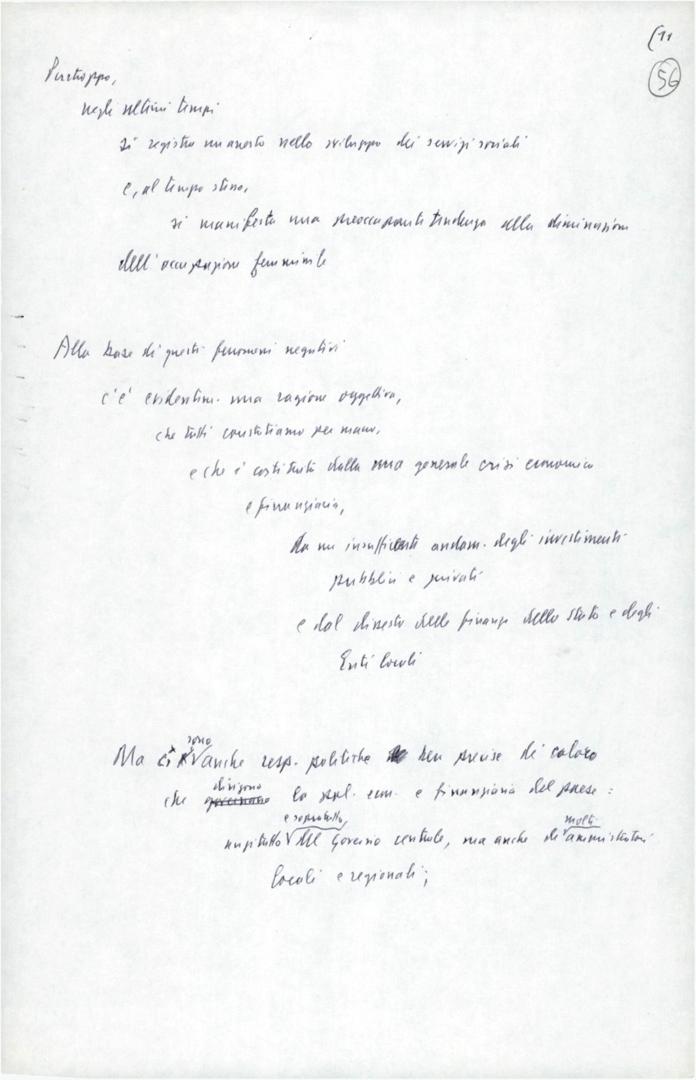 (11
56
Purtroppo,
negli ultimi tempi
si registra un arresto nello sviluppo dei servizi sociali
e, al tempo stesso,
si manifesta una preoccupante tendenza alla diminuzione
dell'occupazione femminile
Alla base di questi fenomeni negativi
c'è evidentem. una ragione oggettiva,
che tutti constatiamo per mano,
e che è costituita dalla una generale crisi economica
e finanziaria,
da un insufficiente andam. degli investimenti
pubblici e privati
e dal dissesto delle finanze dello stato e degli
Enti locali
sono
Ma ci anche resp. politiche ben precise di coloro
dirigono
che governano la pol. econ. e finanziaria del paese:
e soprattutto, molti
anzitutto del Governo centrale, ma anche di amministratori
locali e regionali;